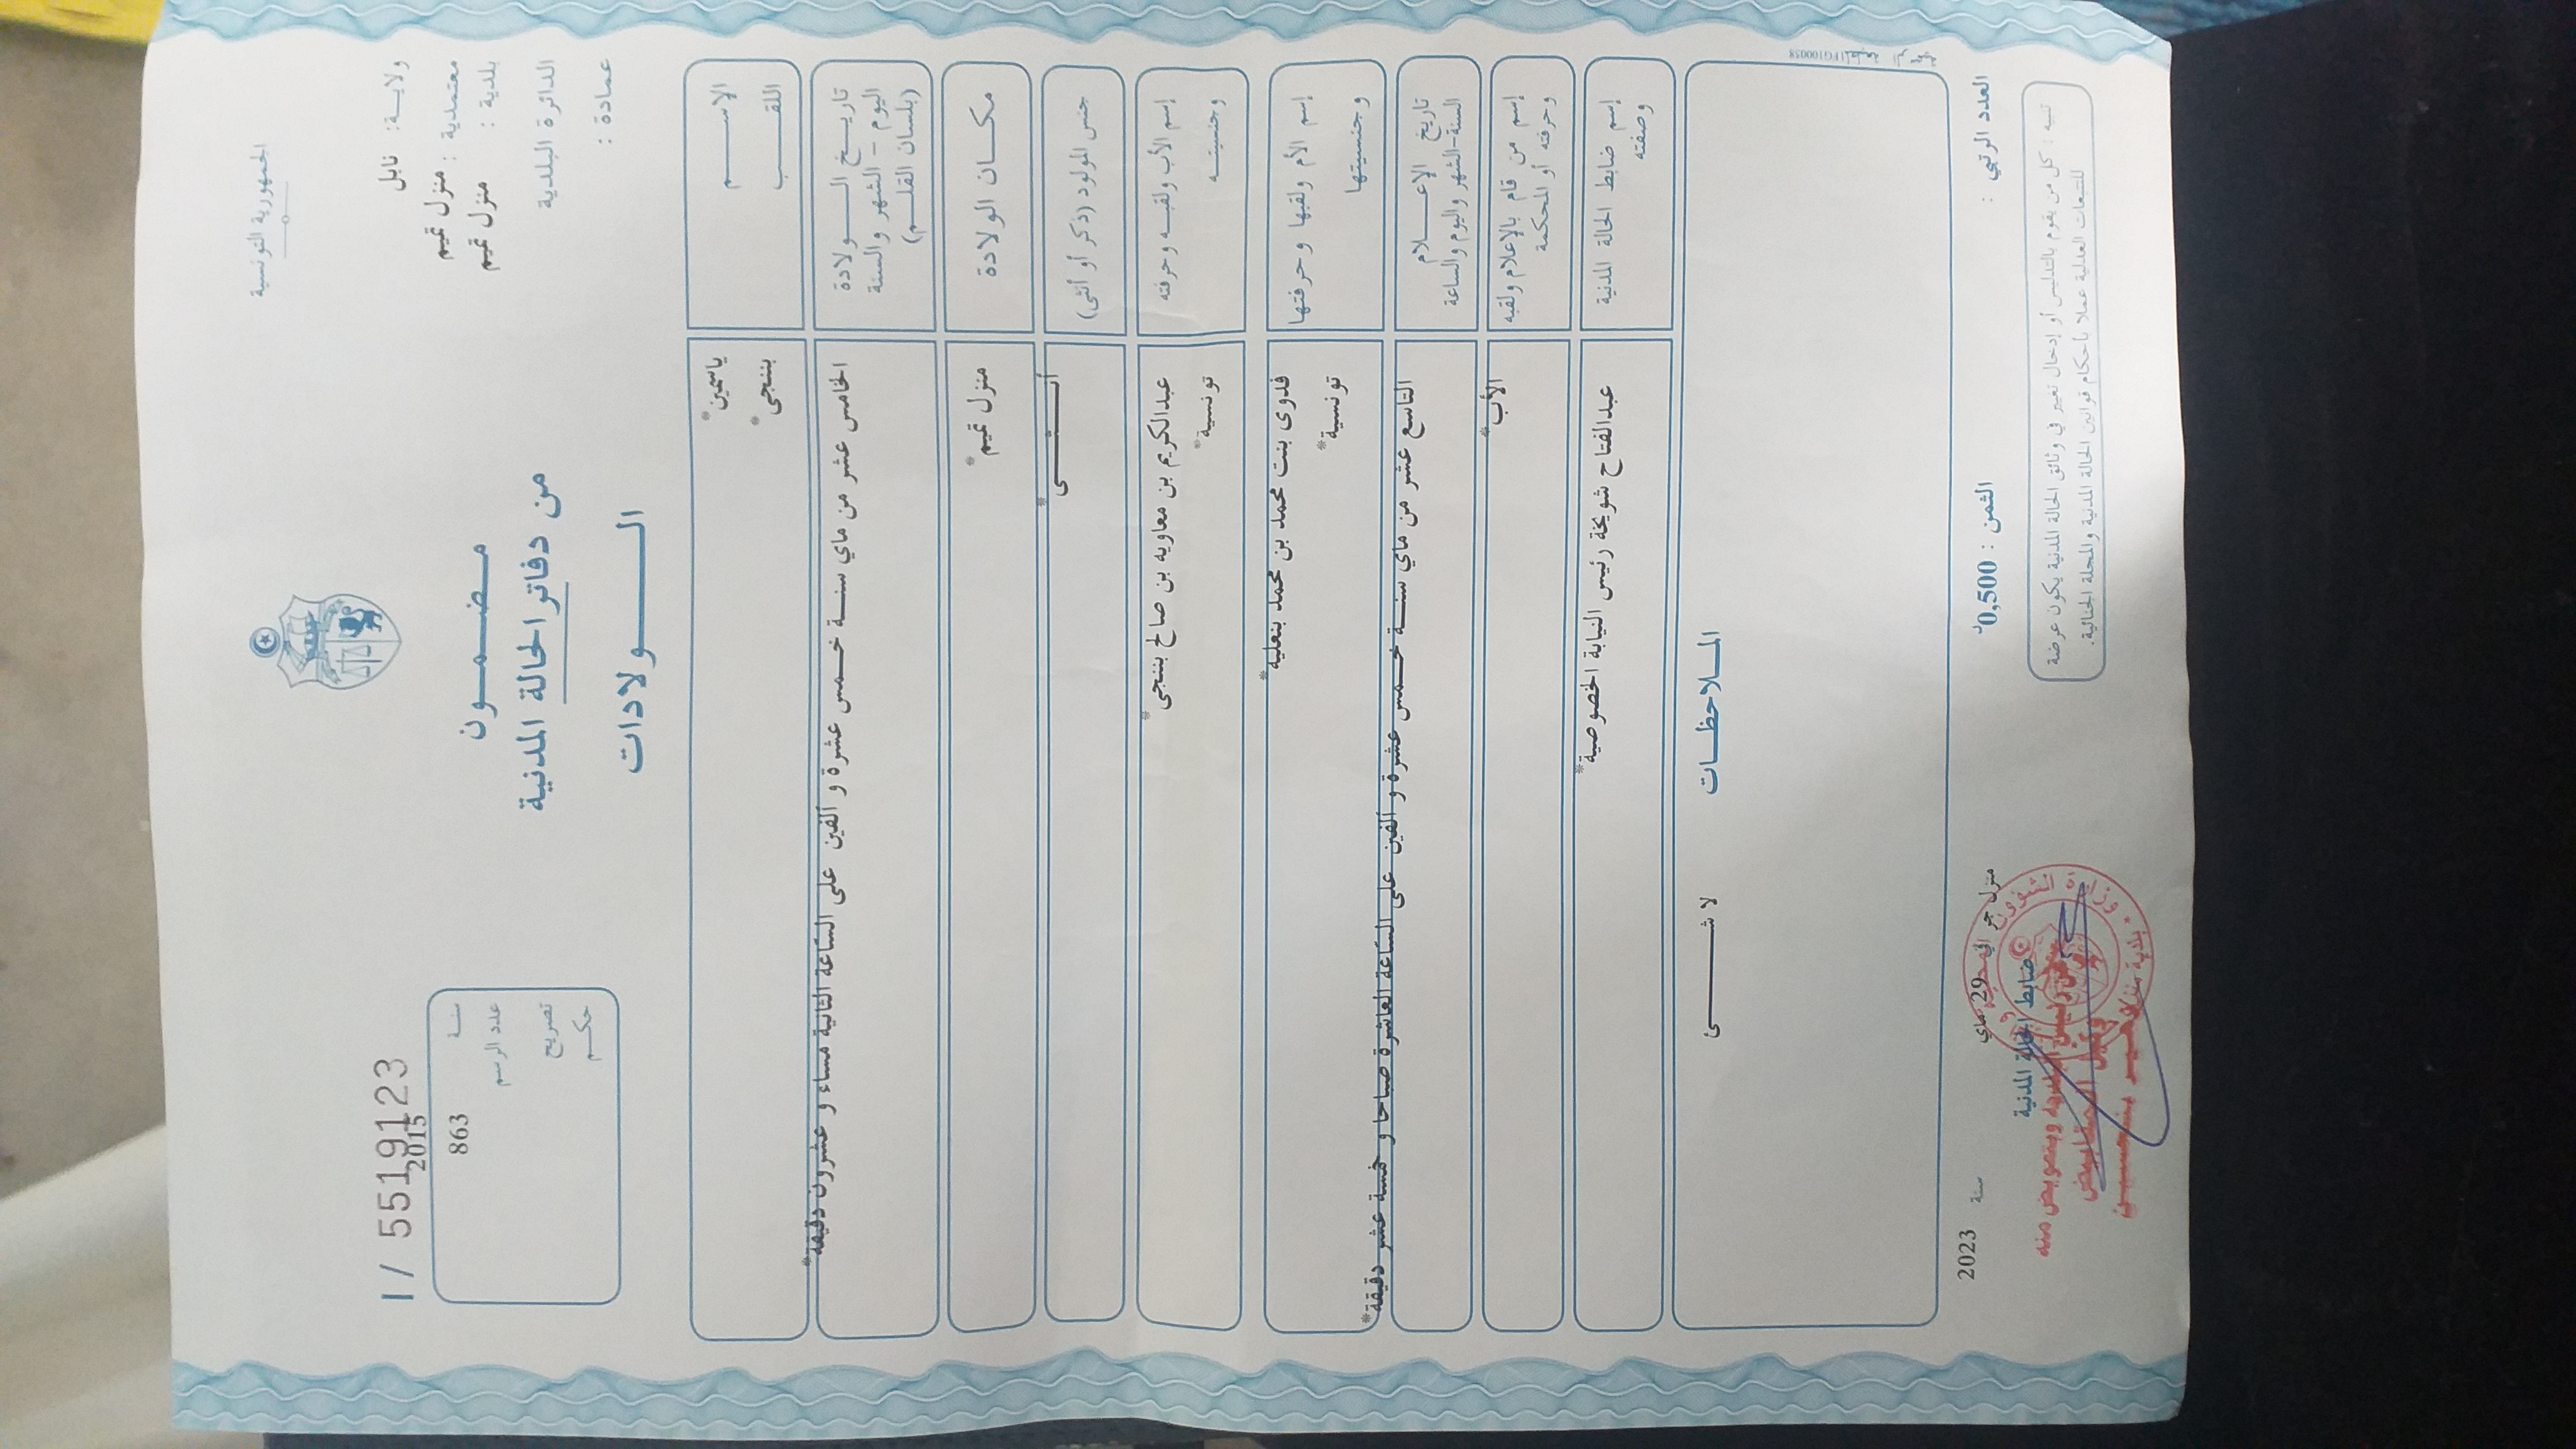 الجمهورية التونسية
ولايـــة: نابل
معتمدية : منزل تميم
بلدية : منزل تميم
الدائرة البلدية
عمادة :
مـضـمـــون
من دفاتر الحالة المدنية
الـــــولادات
I / 5519123
سنـــة 2015
عدد الرسم 863
تصريح
حكـــم
الإســـــم ياسمين*
اللقـــــب بننجى*
تاريـــخ الـــولادة
اليوم – الشهر والسنة
(بلسان القلـــم)
الخامس عشر من ماي سنـــة خـــمس عشرة و ألفين على الساعة الثانية مساء و عشرون دقيقة*
مكـــان الولادة منزل تميم*
جنس المولود (ذكر أو أنثى) أنـــثـــى*
إسم الأب ولقبـــه وحرفته عبدالكريم بن معاويه بن صالح بننجى*
وجنسيتـــه تونسية*
إسم الأم ولقبها وحرفتها فدوى بنت محمد بن محمد بنعلية*
وجنسيتها تونسية*
تاريخ الإعـــلام
السنة-الشهر واليوم والساعة
التاسع عشر من ماي سنـــة خـــمس عشرة و ألفين على الساعة العاشرة صباحا و خمسة عشر دقيقة*
إسم من قام بالإعلام ولقبه
وحرفته أو المحكمة
الأب*
إسم ضابط الحالة المدنية
وصفته
عبدالفتاح شويخة رئيس النيابة الخصوصية*
المـــلاحظـــات
لا شـــــئ
العدد الرتبي :
الثمن : 0,500د
منزل حر في 29 ماي سنة 2023
ضابط الحالة المدنية
عن رئيس البلدية وبتفويض منه
تنبيه : كل من يقوم بالتدليس أو إدخال تغيير في وثائق الحالة المدنية يكون عرضة
للتتبعات العدلية عملا بأحكام قوانين الحالة المدنية والمجلة الجنائية.